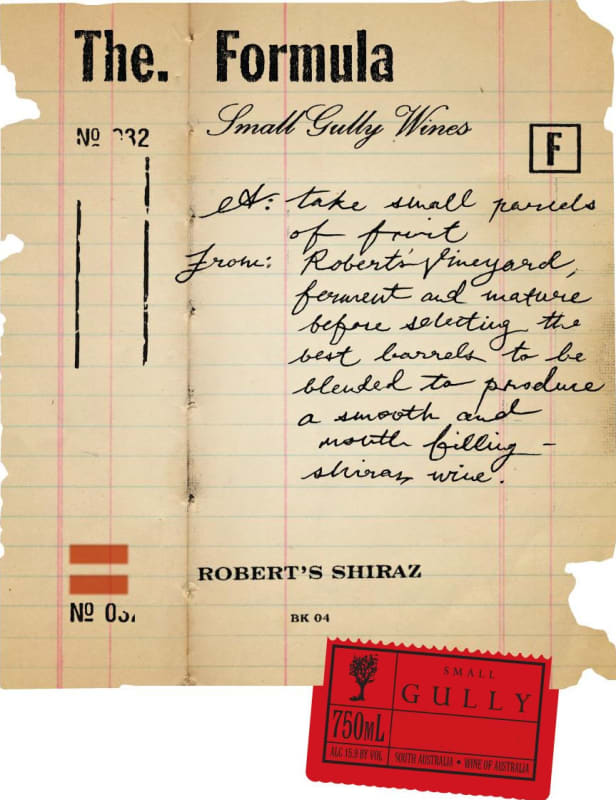 The. Formula
Small Gully Wines
Nº 032
F
A: take small parcels
of fruit
From: Robert's Vineyard,
ferment and mature
before selecting the
best barrels to be
blended to produce
a smooth and
mouth filling –
shiraz wine.
ROBERT'S SHIRAZ
Nº 032
BK 04
SMALL
GULLY
750ML
ALC 15.9 BY VOL
SOUTH AUSTRALIA • WINE OF AUSTRALIA